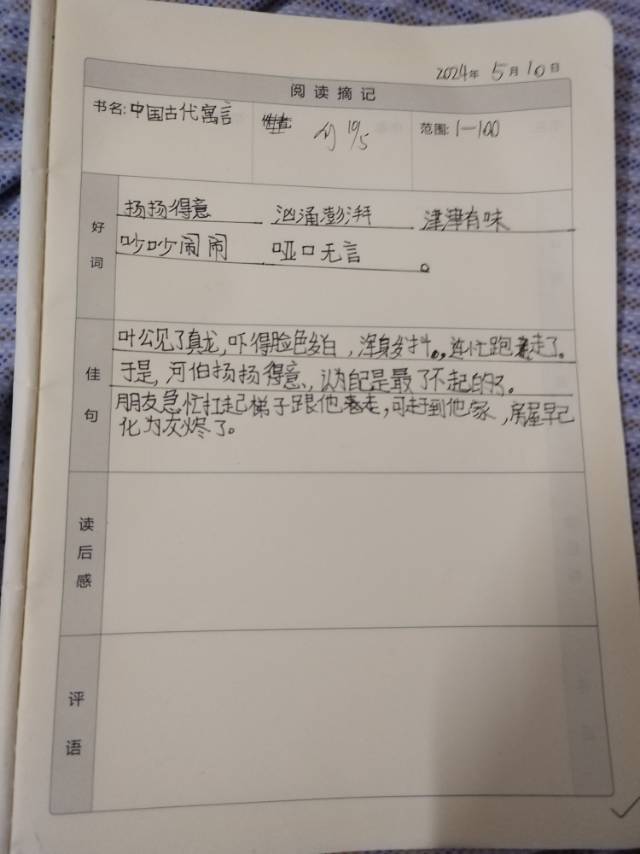 2024年 5月 10日
阅读摘记
书名:中国古代寓言
10/5
范围: 1—100
好词
扬扬得意 汹涌澎湃 津津有味
吵吵闹闹 哑口无言。
佳句
叶公见了真龙,吓得脸色发白,浑身发抖。,连忙跑着走了。
于是,河伯扬扬得意,认为自己是最了不起的了。
朋友急忙扛起梯子跟他着走,可赶到他家,房屋早已
化为灰烬了。
读后感
评语